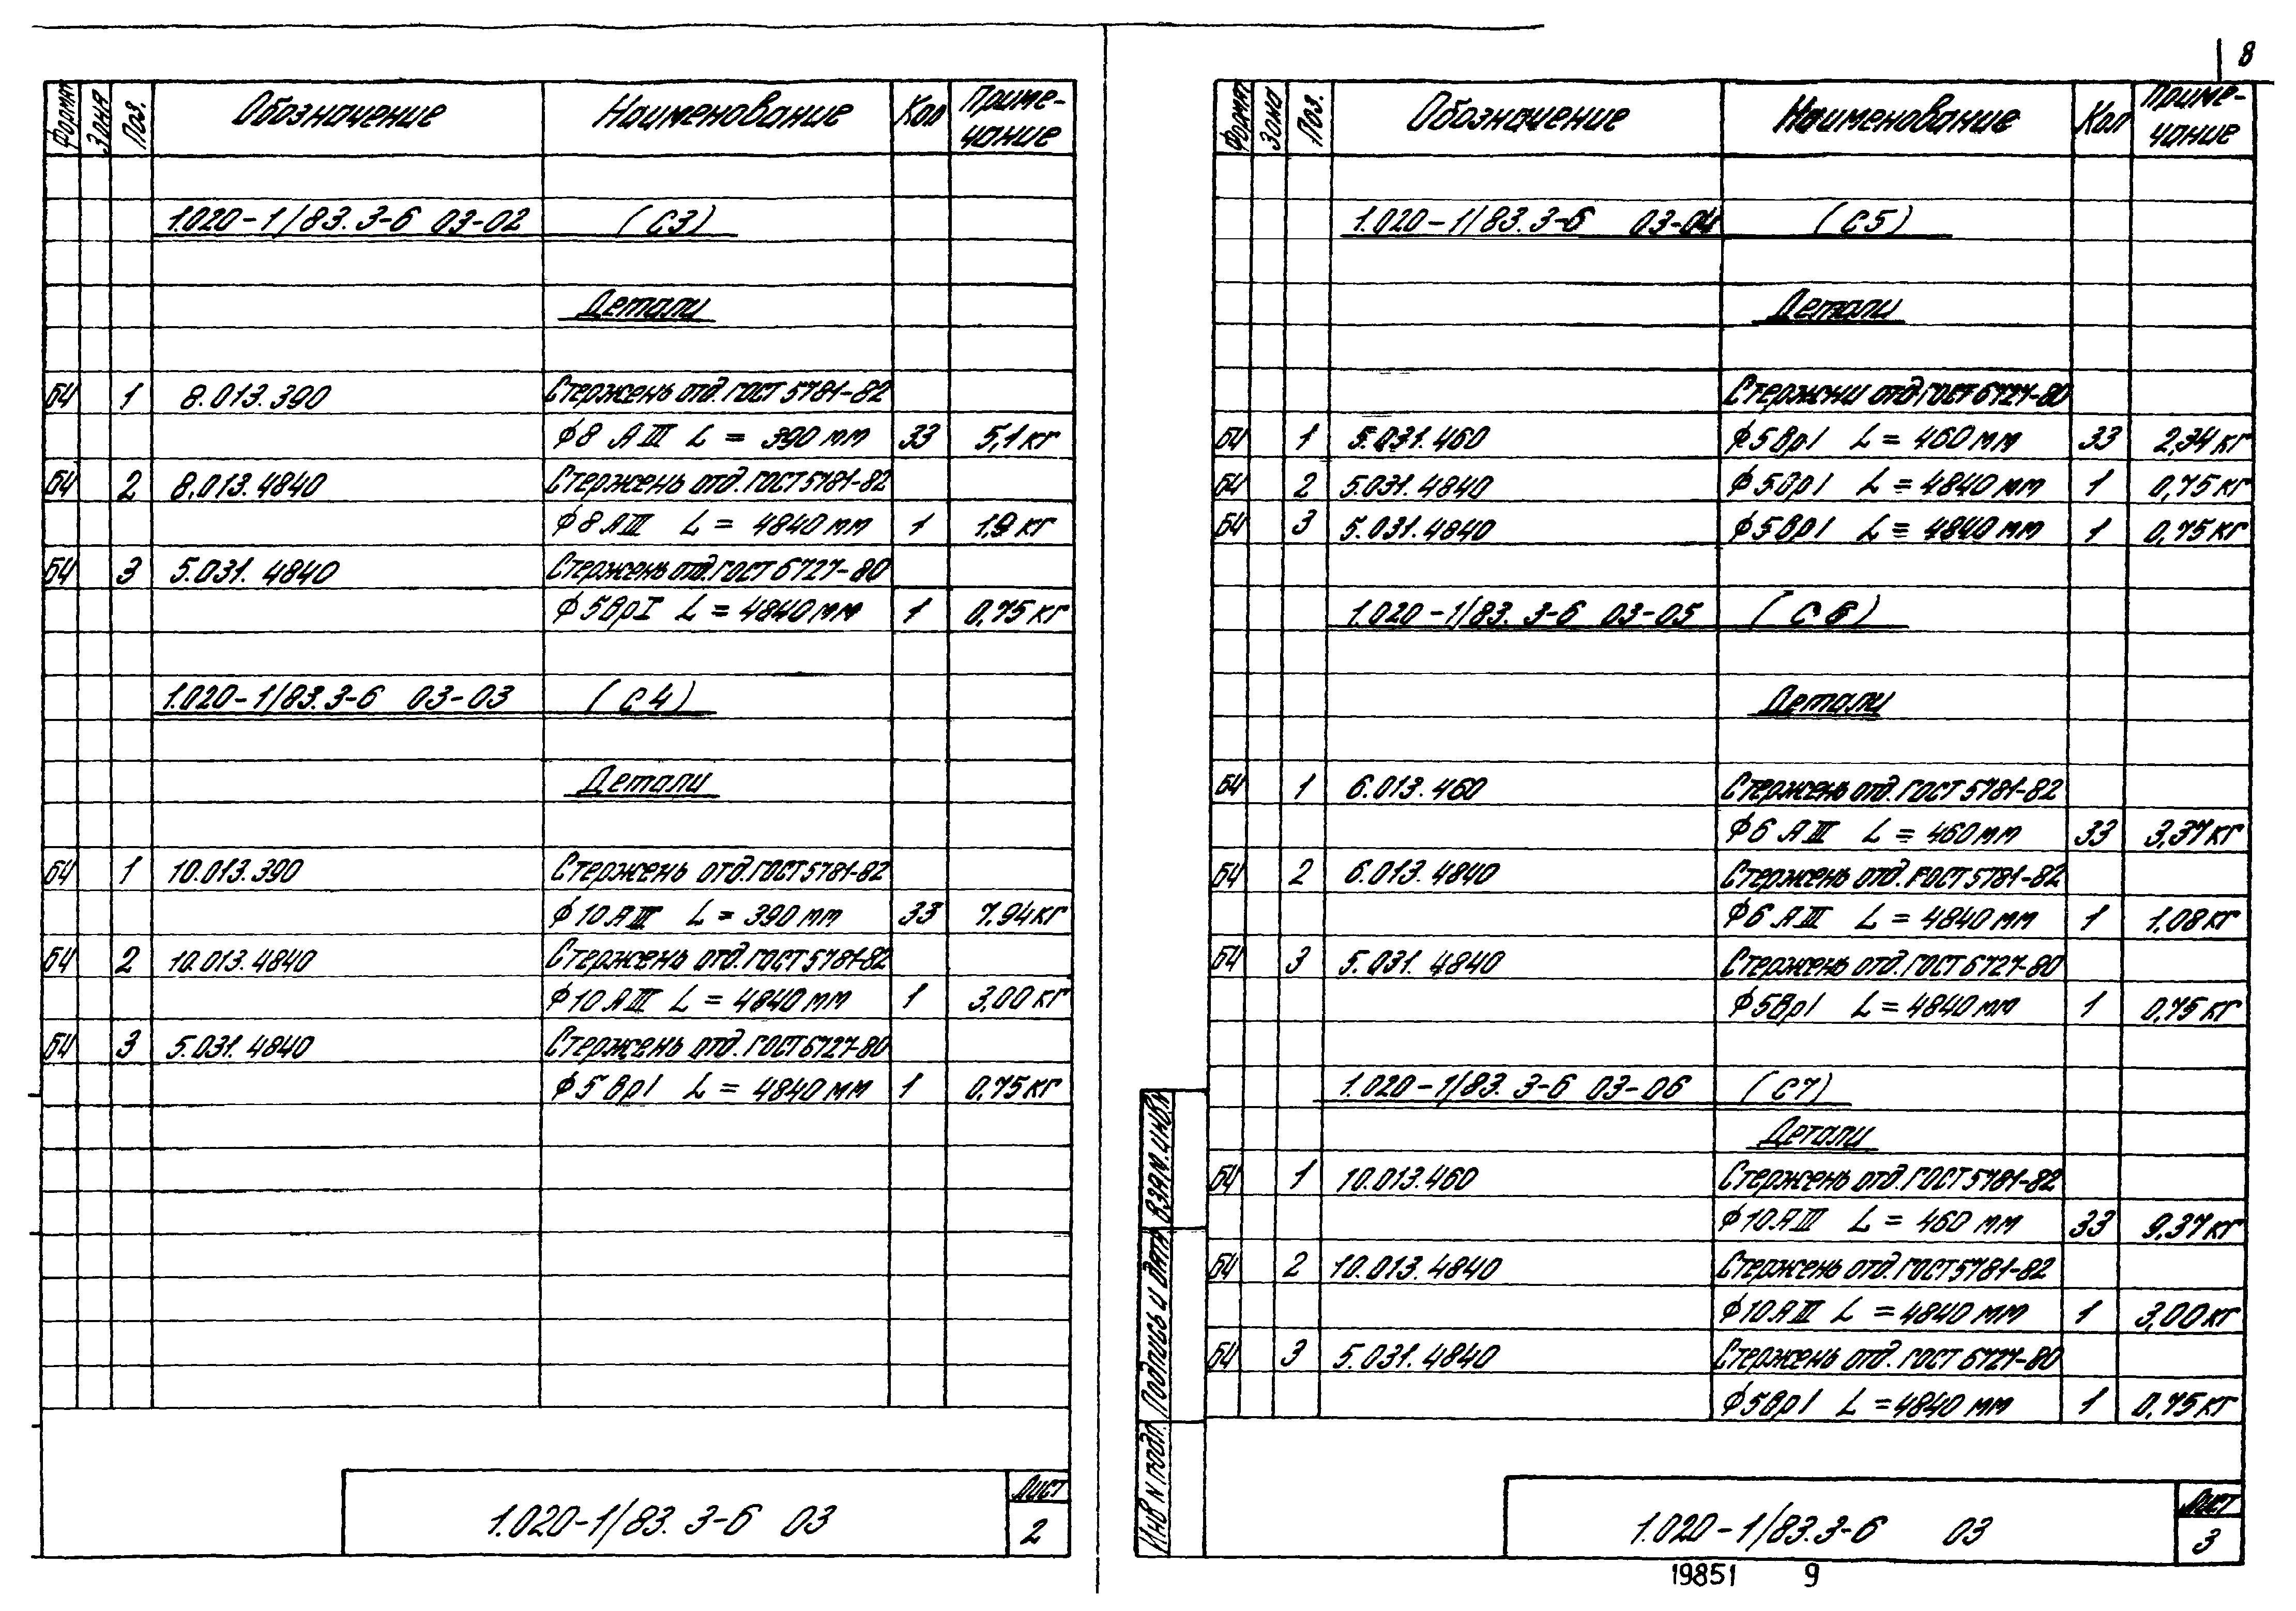 8
Формат Зона Поз. Обозначение Наименование Кол Приме-
чание
1.020-1/83.3-6 03-02 (С3)
Детали
БЧ 1 8.013.390 Стержень отд. ГОСТ 5781-82
ф8 АIII L = 390 мм 33 5,1 кг
БЧ 2 8.013.4840 Стержень отд. ГОСТ 5781-82
ф8 АIII L = 4840 мм 1 1,9 кг
БЧ 3 5.031.4840 Стержень отд. ГОСТ 6727-80
ф5ВрI L = 4840 мм 1 0,75 кг
1.020-1/83.3-6 03-03 (С4)
Детали
БЧ 1 10.013.390 Стержень отд. ГОСТ 5781-82
ф10 АIII L = 390 мм 33 7.94 кг
БЧ 2 10.013.4840 Стержень отд. ГОСТ 5781-82
ф10 АIII L = 4840 мм 1 3,00 кг
БЧ 3 5.031.4840 Стержень отд. ГОСТ 6727-80
ф5 ВрI L = 4840 мм 1 0,75 кг
1.020-1/83. 3-6 03
Лист
2
Формат Зона Поз. Обозначение Наименование Кол Приме-
чание
1.020-1/83.3-6 03-04 (С5)
Детали
Стержни отд. ГОСТ 6727-80
БЧ 1 5.031.460 ф5ВрI L = 460 мм 33 2,34 кг
БЧ 2 5.031.4840 ф5ВрI L = 4840 мм 1 0,75 кг
БЧ 3 5.031.4840 ф5ВрI L = 4840 мм 1 0,75 кг
1.020-1/83. 3-6 03-05 (С6)
Детали
БЧ 1 6.013.460 Стержень отд. ГОСТ 5781-82
ф6 АIII L = 460 мм 33 3,37 кг
БЧ 2 6.013.4840 Стержень отд. ГОСТ 5781-82
ф6 АIII L = 4840 мм 1 1,08 кг
БЧ 3 5.031.4840 Стержень отд. ГОСТ 6727-80
ф5ВрI L = 4840 мм 1 0,75 кг
1.020-1/83. 3-6 03-06 (С7)
Детали
БЧ 1 10.013.460 Стержень отд. ГОСТ 5781-82
ф10 АIII L = 460 мм 33 9,37 кг
БЧ 2 10.013.4840 Стержень отд. ГОСТ 5781-82
ф10 АIII L = 4840 мм 1 3,00 кг
БЧ 3 5.031.4840 Стержень отд. ГОСТ 6727-80
ф5ВрI L = 4840 мм 1 0,75 кг
Инв N подл. Подпись и дата Взам. инв. N
1.020-1/83.3-6 03
Лист
3
19851 9